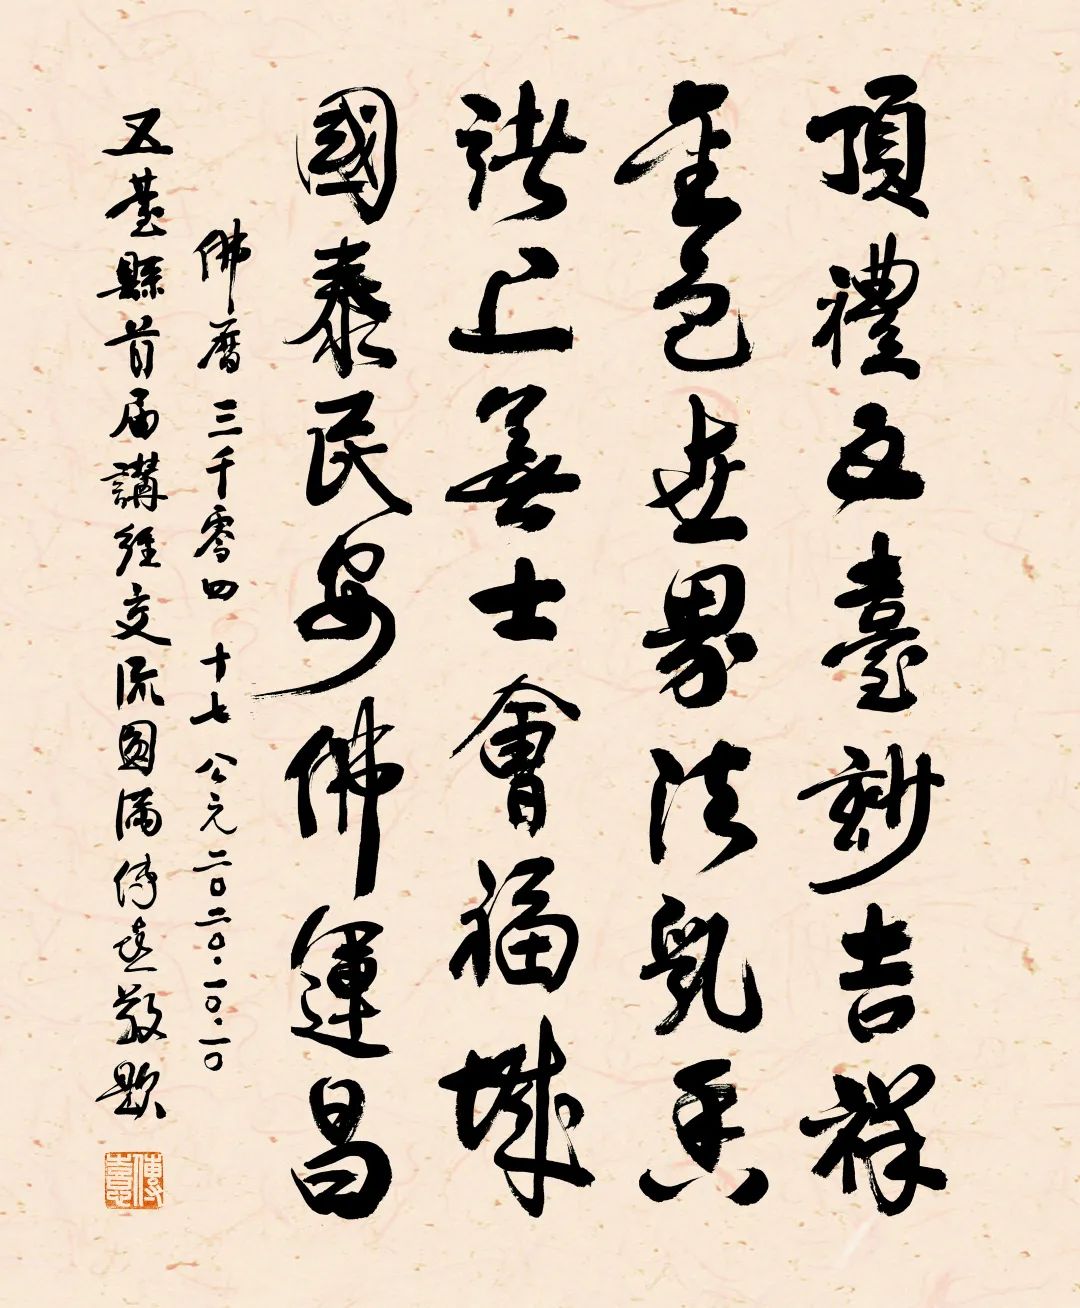 頂禮五臺妙吉祥
金色世界法乳香
諸上善士會福城
國泰民安佛運昌
佛曆三千零四十七公元二〇二〇.一〇.一〇
五臺縣首届講經交流圓滿傳意敬題
傳意